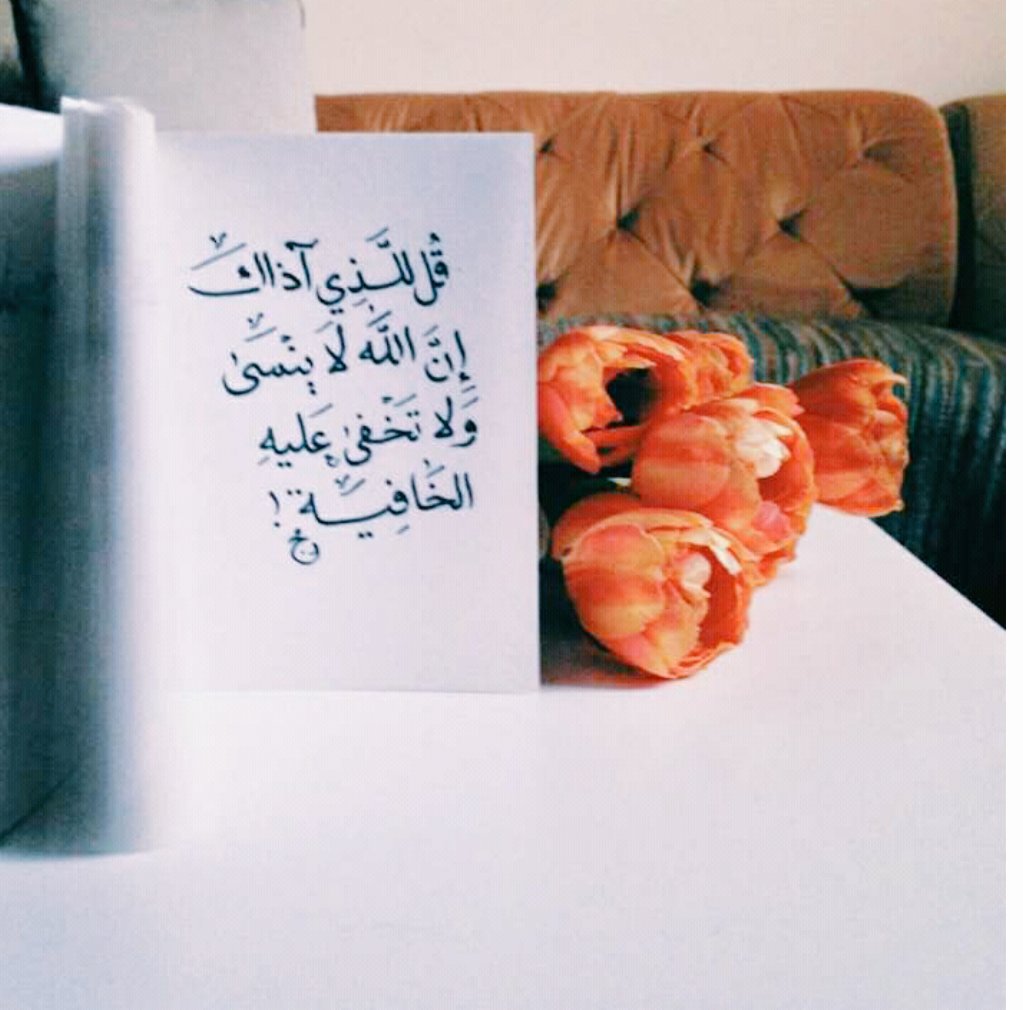 قُل للَّذِي آذاكَ
إِنَّ اللَّه لَا يَنْسَىٰ
وَلا تَخْفىٰ عَليهِ
الخَافِيَة !